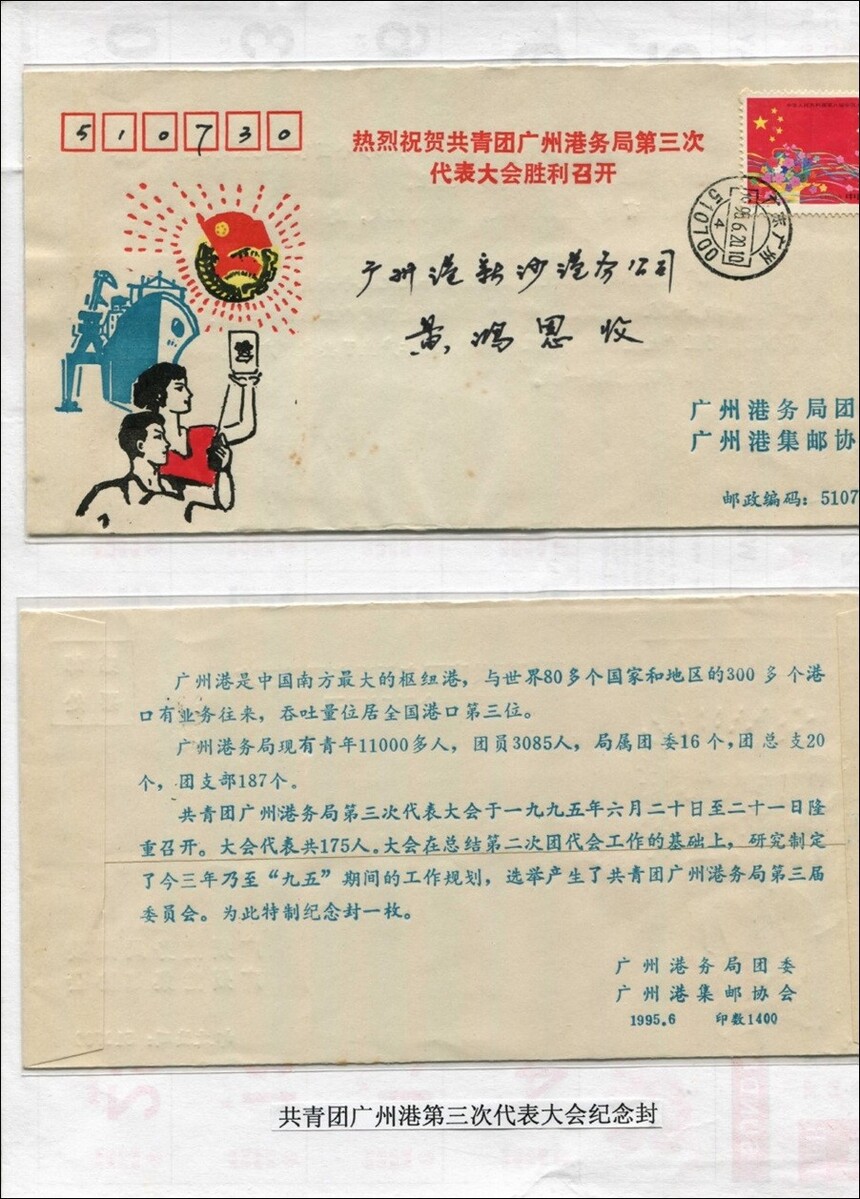 510730
热烈祝贺共青团广州港务局第三次
代表大会胜利召开
广东广州
1995.6.20.10
4
510700
广州港新沙港务公司
黄鸿恩收
广州港务局团
广州港集邮协
邮政编码：5107
广州港是中国南方最大的枢纽港，与世界80多个国家和地区的300多个港
口有业务往来，吞吐量位居全国港口第三位。
广州港务局现有青年11000多人，团员3085人，局属团委16个，团总支20
个，团支部187个。
共青团广州港务局第三次代表大会于一九九五年六月二十日至二十一日隆
重召开。大会代表共175人。大会在总结第二次团代会工作的基础上，研究制定
了今三年乃至“九五”期间的工作规划，选举产生了共青团广州港务局第三届
委员会。为此特制纪念封一枚。
广州港务局团委
广州港集邮协会
1995.6 印数1400
共青团广州港第三次代表大会纪念封